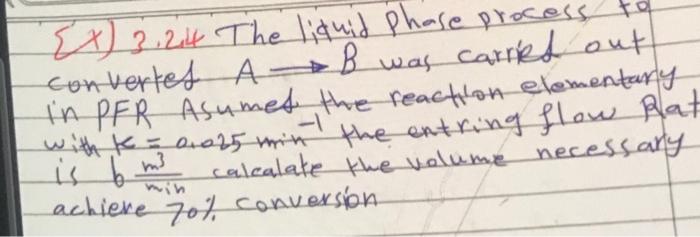 Ex) 3.2.4 The liquid phase process to
converted A → B was carried out
in PFR Asumed the reaction elementary
with K = 0.025 min⁻¹ the entring flow Rat
is 6 m³/min calcalate the volume necessary
achieve 70% conversion